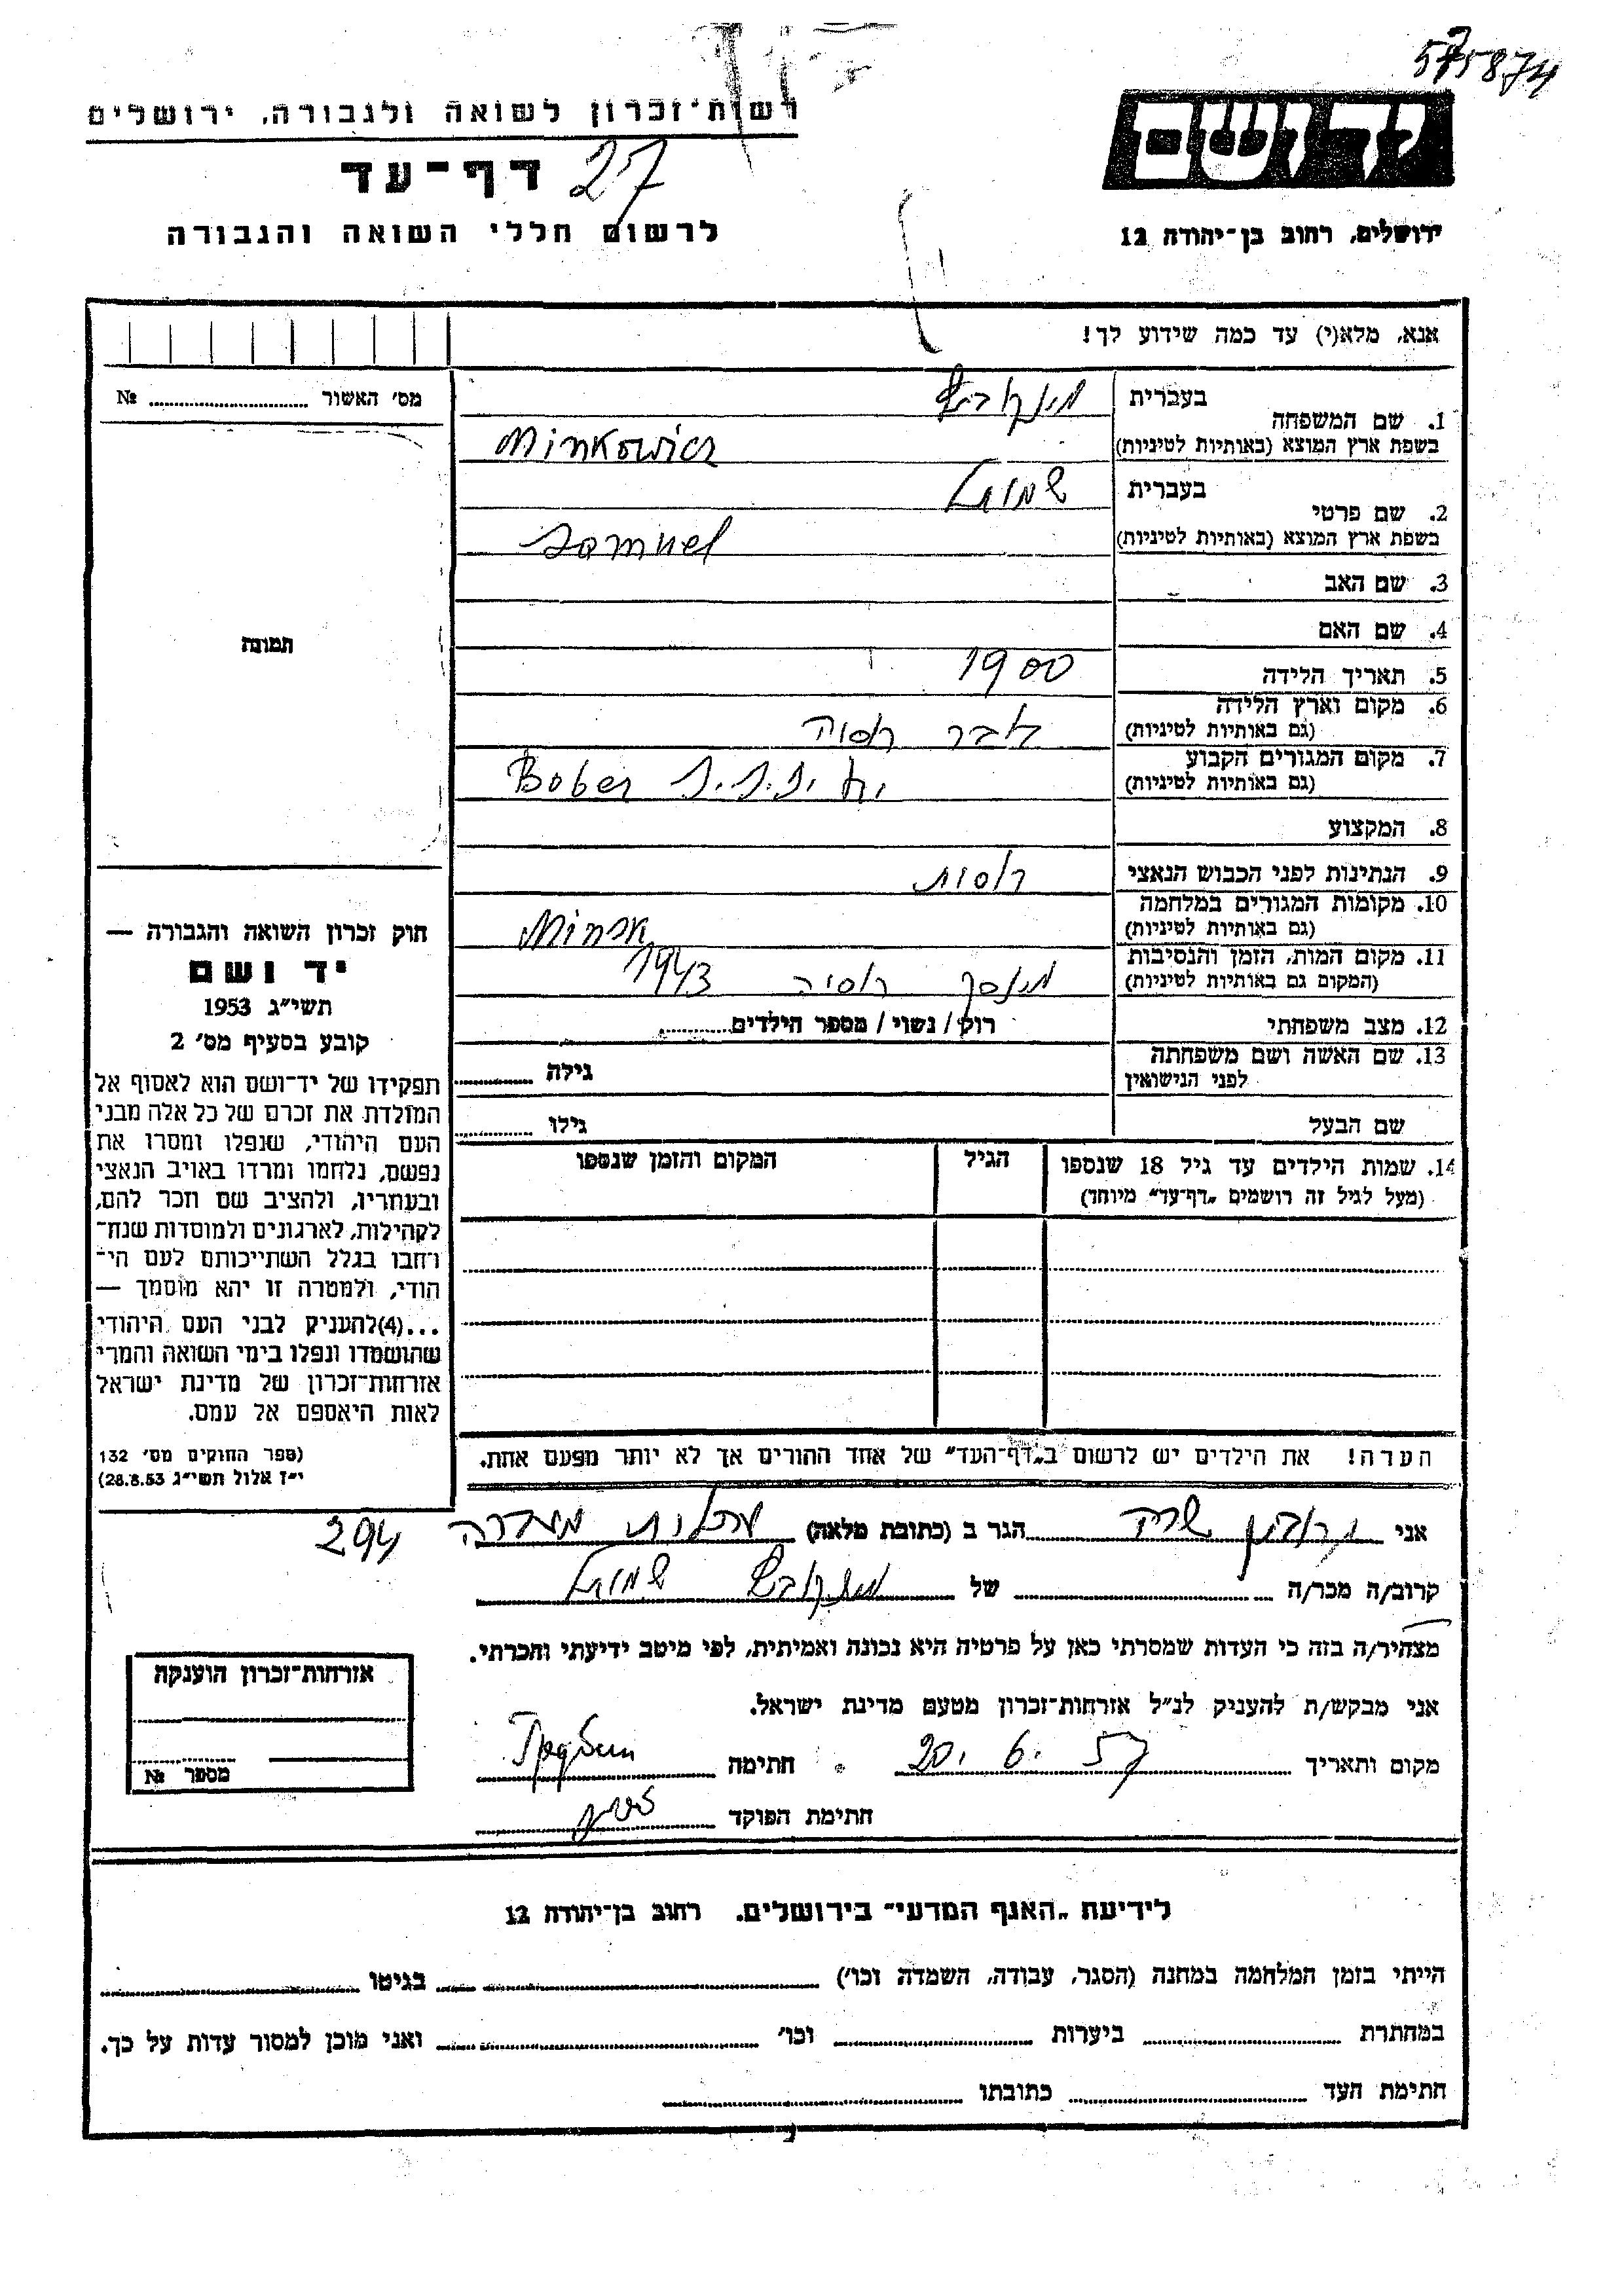 575874
רשות-זכרון לשואה ולגבורה, ירושלים
יד ושם
דף-עד 27
לרשום חללי השואה והגבורה
ירושלים, רחוב בן-יהודה 12
אנא, מלא(י) עד כמה שידוע לך!
מס׳ האשור № 
1. שם המשפחה בעברית מינקוביץ
בשפת ארץ המוצא (באותיות לטיניות) Minkowicz
2. שם פרטי בעברית שמואל
בשפת ארץ המוצא (באותיות לטיניות) Samuel
3. שם האב
4. שם האם
תמונה
5. תאריך הלידה 1900
6. מקום וארץ הלידה
(גם באותיות לטיניות) רוסיה
7. מקום המגורים הקבוע
(גם באותיות לטיניות) Bober
8. המקצוע
9. הנתינות לפני הכבוש הנאצי רוסית
10. מקומות המגורים במלחמה
(גם באותיות לטיניות) Minsk
11. מקום המות, הזמן והנסיבות
(המקום גם באותיות לטיניות) מינסק רוסיה 1943
12. מצב משפחתי רווק / נשוי / מספר הילדים
13. שם האשה ושם משפחתה
לפני הנישואין גילה
שם הבעל גילו
14. שמות הילדים עד גיל 18 שנספו הגיל המקום והזמן שנספו
(מעל לגיל זה רושמים „דף-עד״ מיוחד)
חוק זכרון השואה והגבורה —
יד ושם
תשי״ג 1953
קובע בסעיף מס׳ 2
תפקידו של יד-ושם הוא לאסוף אל
המולדת את זכרם של כל אלה מבני
העם היהודי, שנפלו ומסרו את
נפשם, נלחמו ומרדו באויב הנאצי
ובעוזריו, ולהציב שם וזכר להם,
לקהילות, לארגונים ולמוסדות שנח-
רבו בגלל השתייכותם לעם הי-
הודי, ולמטרה זו יהא מוסמך —
...(4)להעניק לבני העם היהודי
שהושמדו ונפלו בימי השואה והמרי
אזרחות-זכרון של מדינת ישראל
לאות היאספם אל עמם.
(ספר החוקים מס׳ 132
י״ז אלול תשי״ג 28.8.53)
הערה! את הילדים יש לרשום ב„דף-העד״ של אחד ההורים אך לא יותר מפעם אחת.
אני שרה הגר ב (כתובת מלאה) 294
קרוב/ה מכר/ה של מינקוביץ שמואל
מצהיר/ה בזה כי העדות שמסרתי כאן על פרטיה היא נכונה ואמיתית, לפי מיטב ידיעתי והכרתי.
אני מבקש/ת להעניק לנ״ל אזרחות-זכרון מטעם מדינת ישראל.
מקום ותאריך 20. 6. 57 חתימה
חתימת הפוקד
אזרחות-זכרון הוענקה
מספר №
לידיעת „האגף המדעי״ בירושלים, רחוב בן-יהודה 12
הייתי בזמן המלחמה במחנה (הסגר, עבודה, השמדה וכו׳) בגיטו
במחתרת ביערות וכו׳ ואני מוכן למסור עדות על כך.
חתימת העד כתובתו